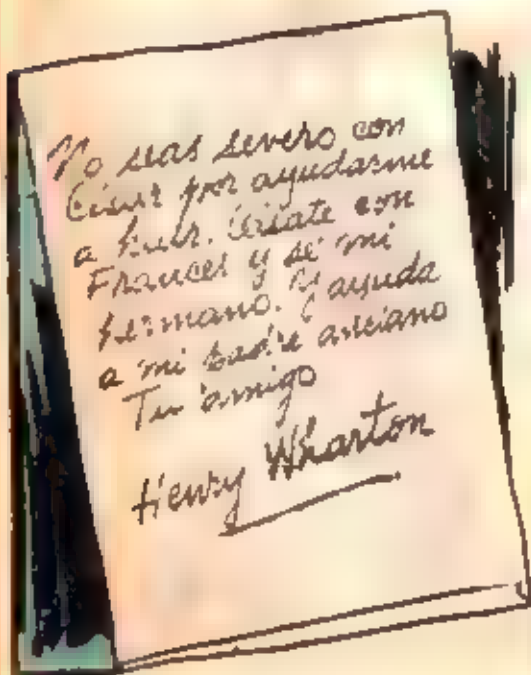 No seas severo con
César por ayudarme
a huir. Cásate con
Frances y sé mi
hermano. Y ayuda
a mi padre anciano
Tu amigo
Henry Wharton